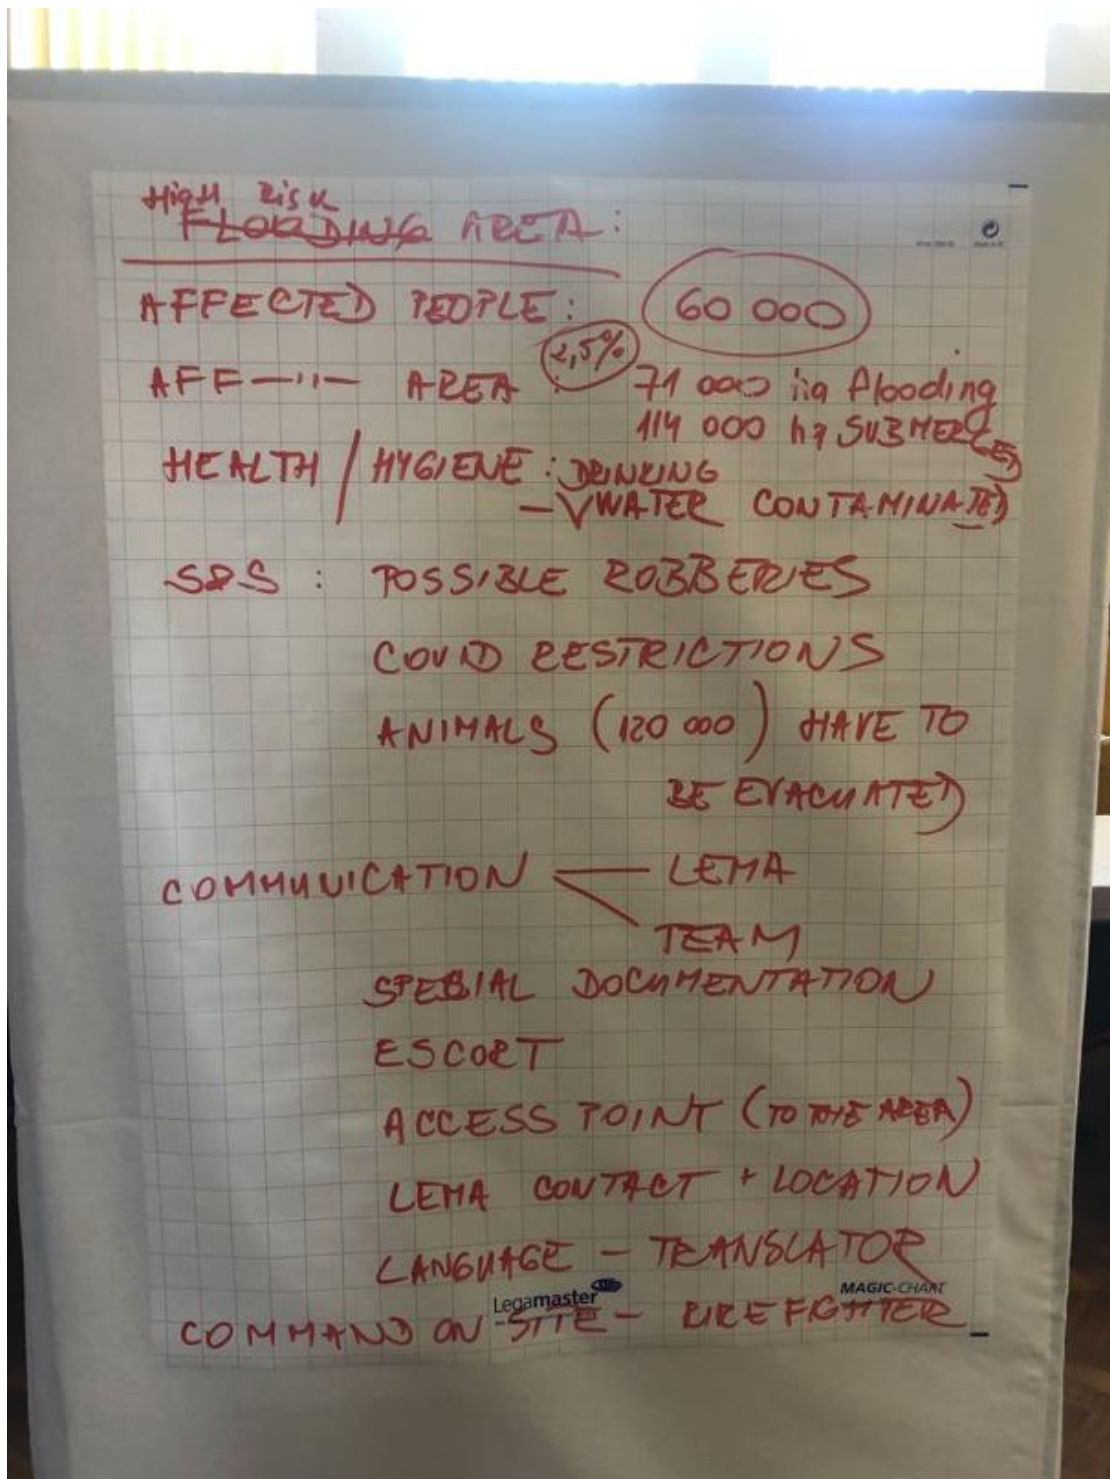 HIGH RISK
FLOODING AREA:
AFFECTED PEOPLE: 60 000
2,5%
AFF—"— AREA : 71 000 ha flooding
114 000 ha SUBMERGED
HEALTH / HYGIENE : DRINKING
– V WATER CONTAMINATED
S&S : POSSIBLE ROBBERIES
COVID RESTRICTIONS
ANIMALS (120 000) HAVE TO
BE EVACUATED
COMMUNICATION — LEMA
TEAM
SPECIAL DOCUMENTATION
ESCORT
ACCESS POINT (TO THE AREA)
LEMA CONTACT + LOCATION
LANGUAGE – TRANSLATOR
Legamaster
MAGIC-CHART
COMMAND ON-SITE – FIREFIGHTER